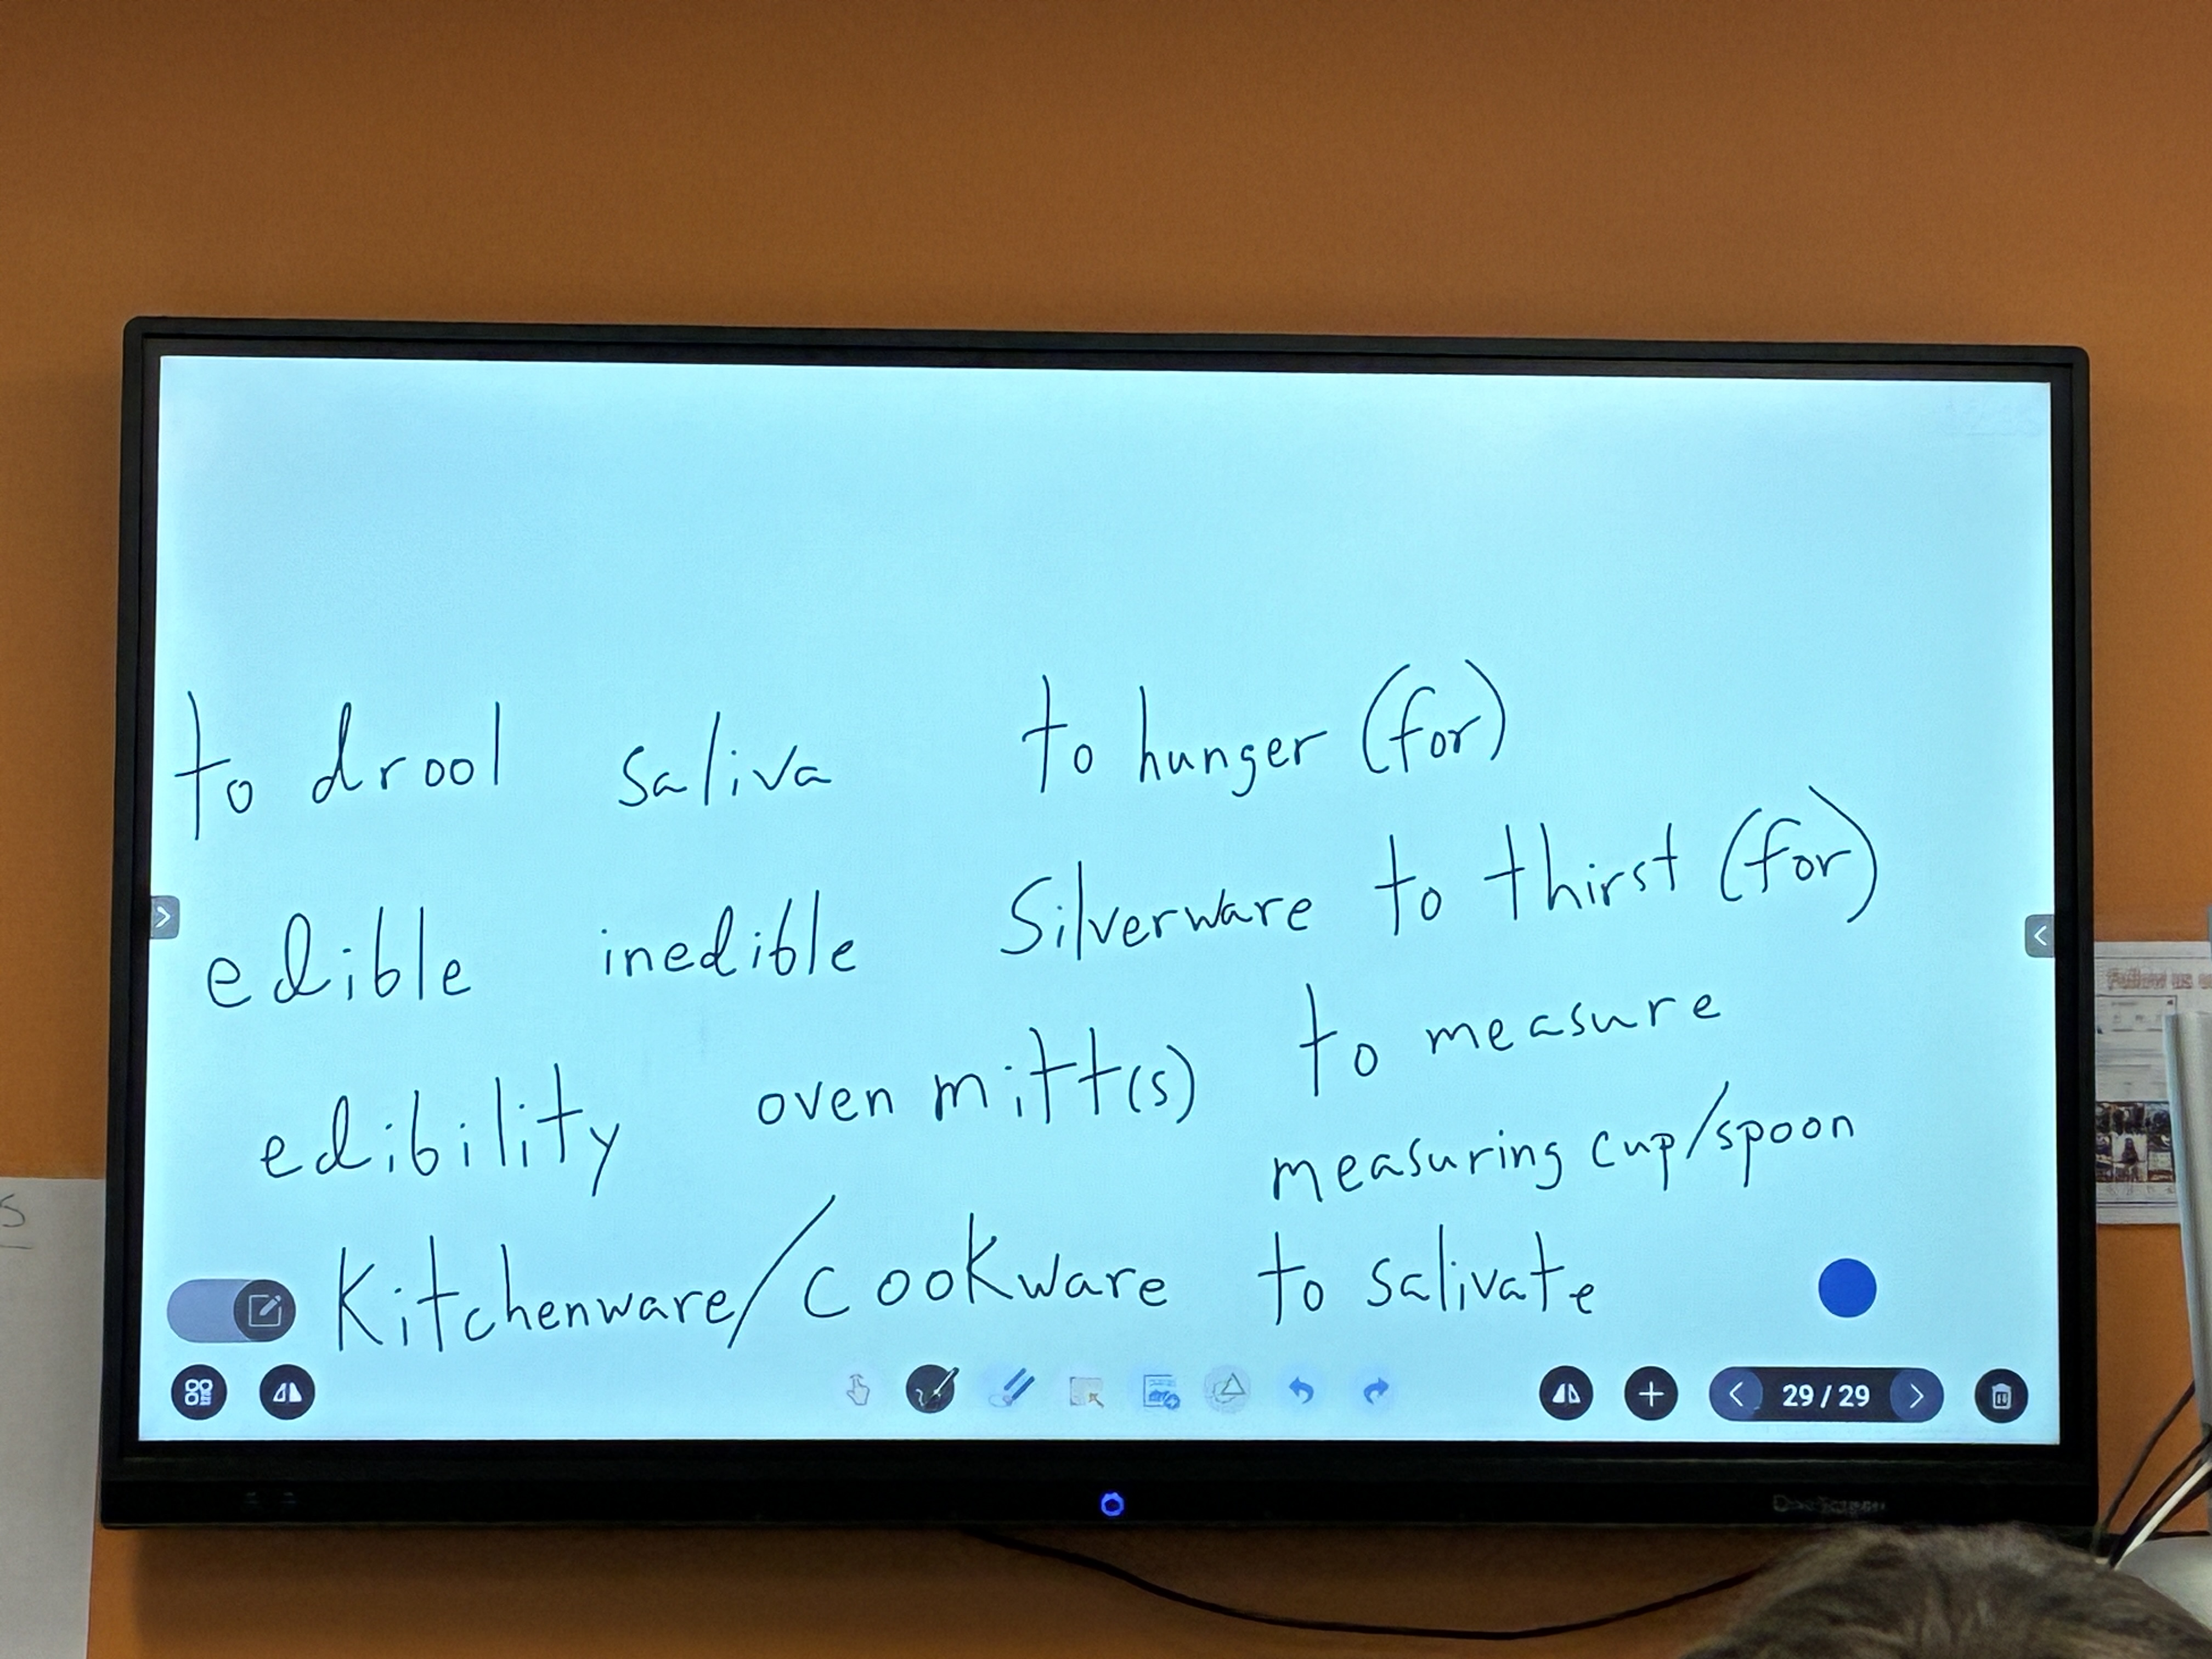 to drool saliva to hunger (for)
edible inedible Silverware to thirst (for)
edibility oven mitt(s) to measure
measuring cup/spoon
Kitchenware/cookware to salivate
29/29
Follow us
S